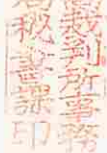 裁判所事務
局秘書課
印